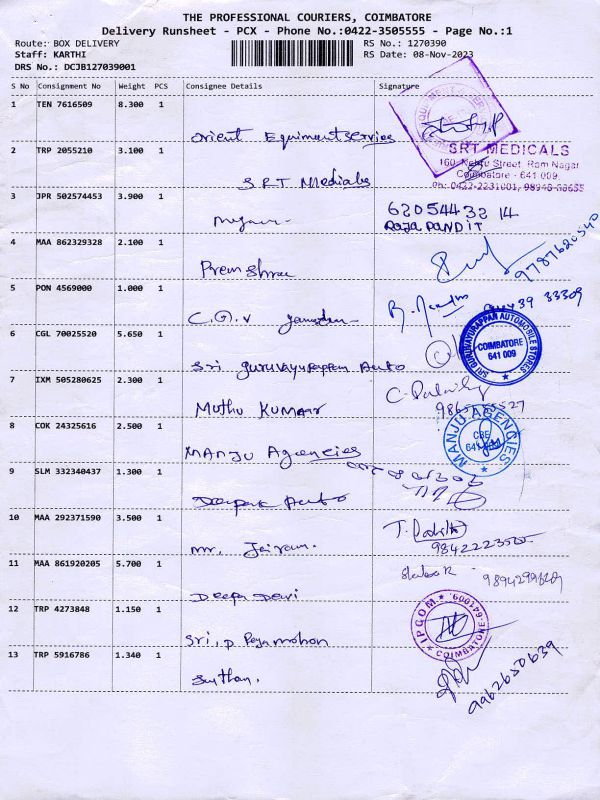 THE PROFESSIONAL COURIERS, COIMBATORE
Delivery Runsheet - PCX - Phone No.:0422-3505555 - Page No.:1
Route: BOX DELIVERY RS No.: 1270390
Staff: KARTHI RS Date: 08-Nov-2023
DRS No.: DCJB127039001
S No Consignment No Weight PCS Consignee Details Signature
1 TEN 7616509 8.300 1
Orient Equiment services
2 TRP 2055210 3.100 1
SRT Medicals
SRT MEDICALS
160, Nehru Street, Ram Nagar
Coimbatore - 641 009.
Ph: 0422-2231001, 98948-88655
3 JPR 502574453 3.900 1
6205443214
RAJA PANDIT
4 MAA 862329328 2.100 1
Prem
9787620540
5 PON 4569000 1.000 1
C.G.V
39 33309
6 CGL 70025520 5.650 1
Sri guruvayurappan Auto
SRI GURUVAYURAPPAN AUTOMOBILE STORES
COIMBATORE
641 009
7 IXM 505280625 2.300 1
Muthu KUMAR
8 COK 24325616 2.500 1
MANJU Agencies
MANJU AGENCIES
CBE
9 SLM 332340437 1.300 1
Deepak Auto
10 MAA 292371590 3.500 1
Mr. Jairam.
11 MAA 861920205 5.700 1
Deepa Devi
12 TRP 4273848 1.150 1
Sri. P
IPCOM
COIMBATORE-641009
13 TRP 5916786 1.340 1
9962650639